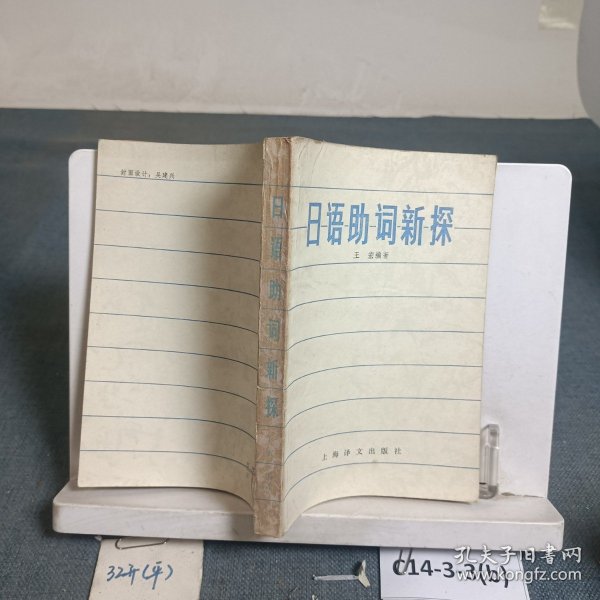 封面设计：吴建兴
日语助词新探
日语助词新探
王宏编著
上海译文出版社
32开(平)
C14-3-3(b)
孔夫子旧书网
www.kongfz.com